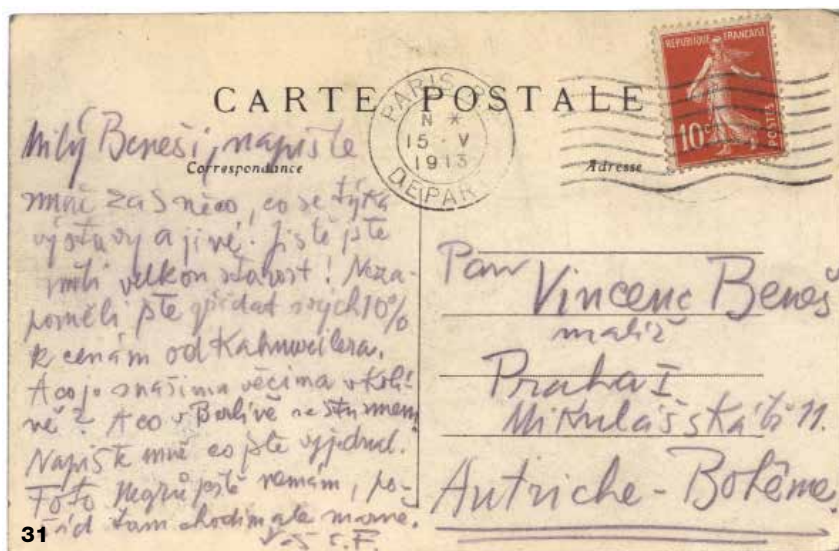 CARTE POSTALE
PARIS
N *
15 · V
1913
DEPART
REPUBLIQUE FRANÇAISE
10 c
POSTES
Correspondance
Adresse
Milý Beneši, napište
mně zas něco, co se týká
výstavy a jiné. Jistě jste
měli velkou starost! Neza-
poměli jste přidat svých 10%
k cenám od Kahnweilera.
A co je s našima věcima v Kolí-
ně? A co v Berlíně se Sturmem
Napište mně co jste vyjednal.
Foto negrů ještě nemám, po-
řád tam chodím ale marně.
Váš E.F.
Pan
Vincenc Beneš
malíř
Praha I
Mikulášská tř 11.
Autriche - Bohême.
31